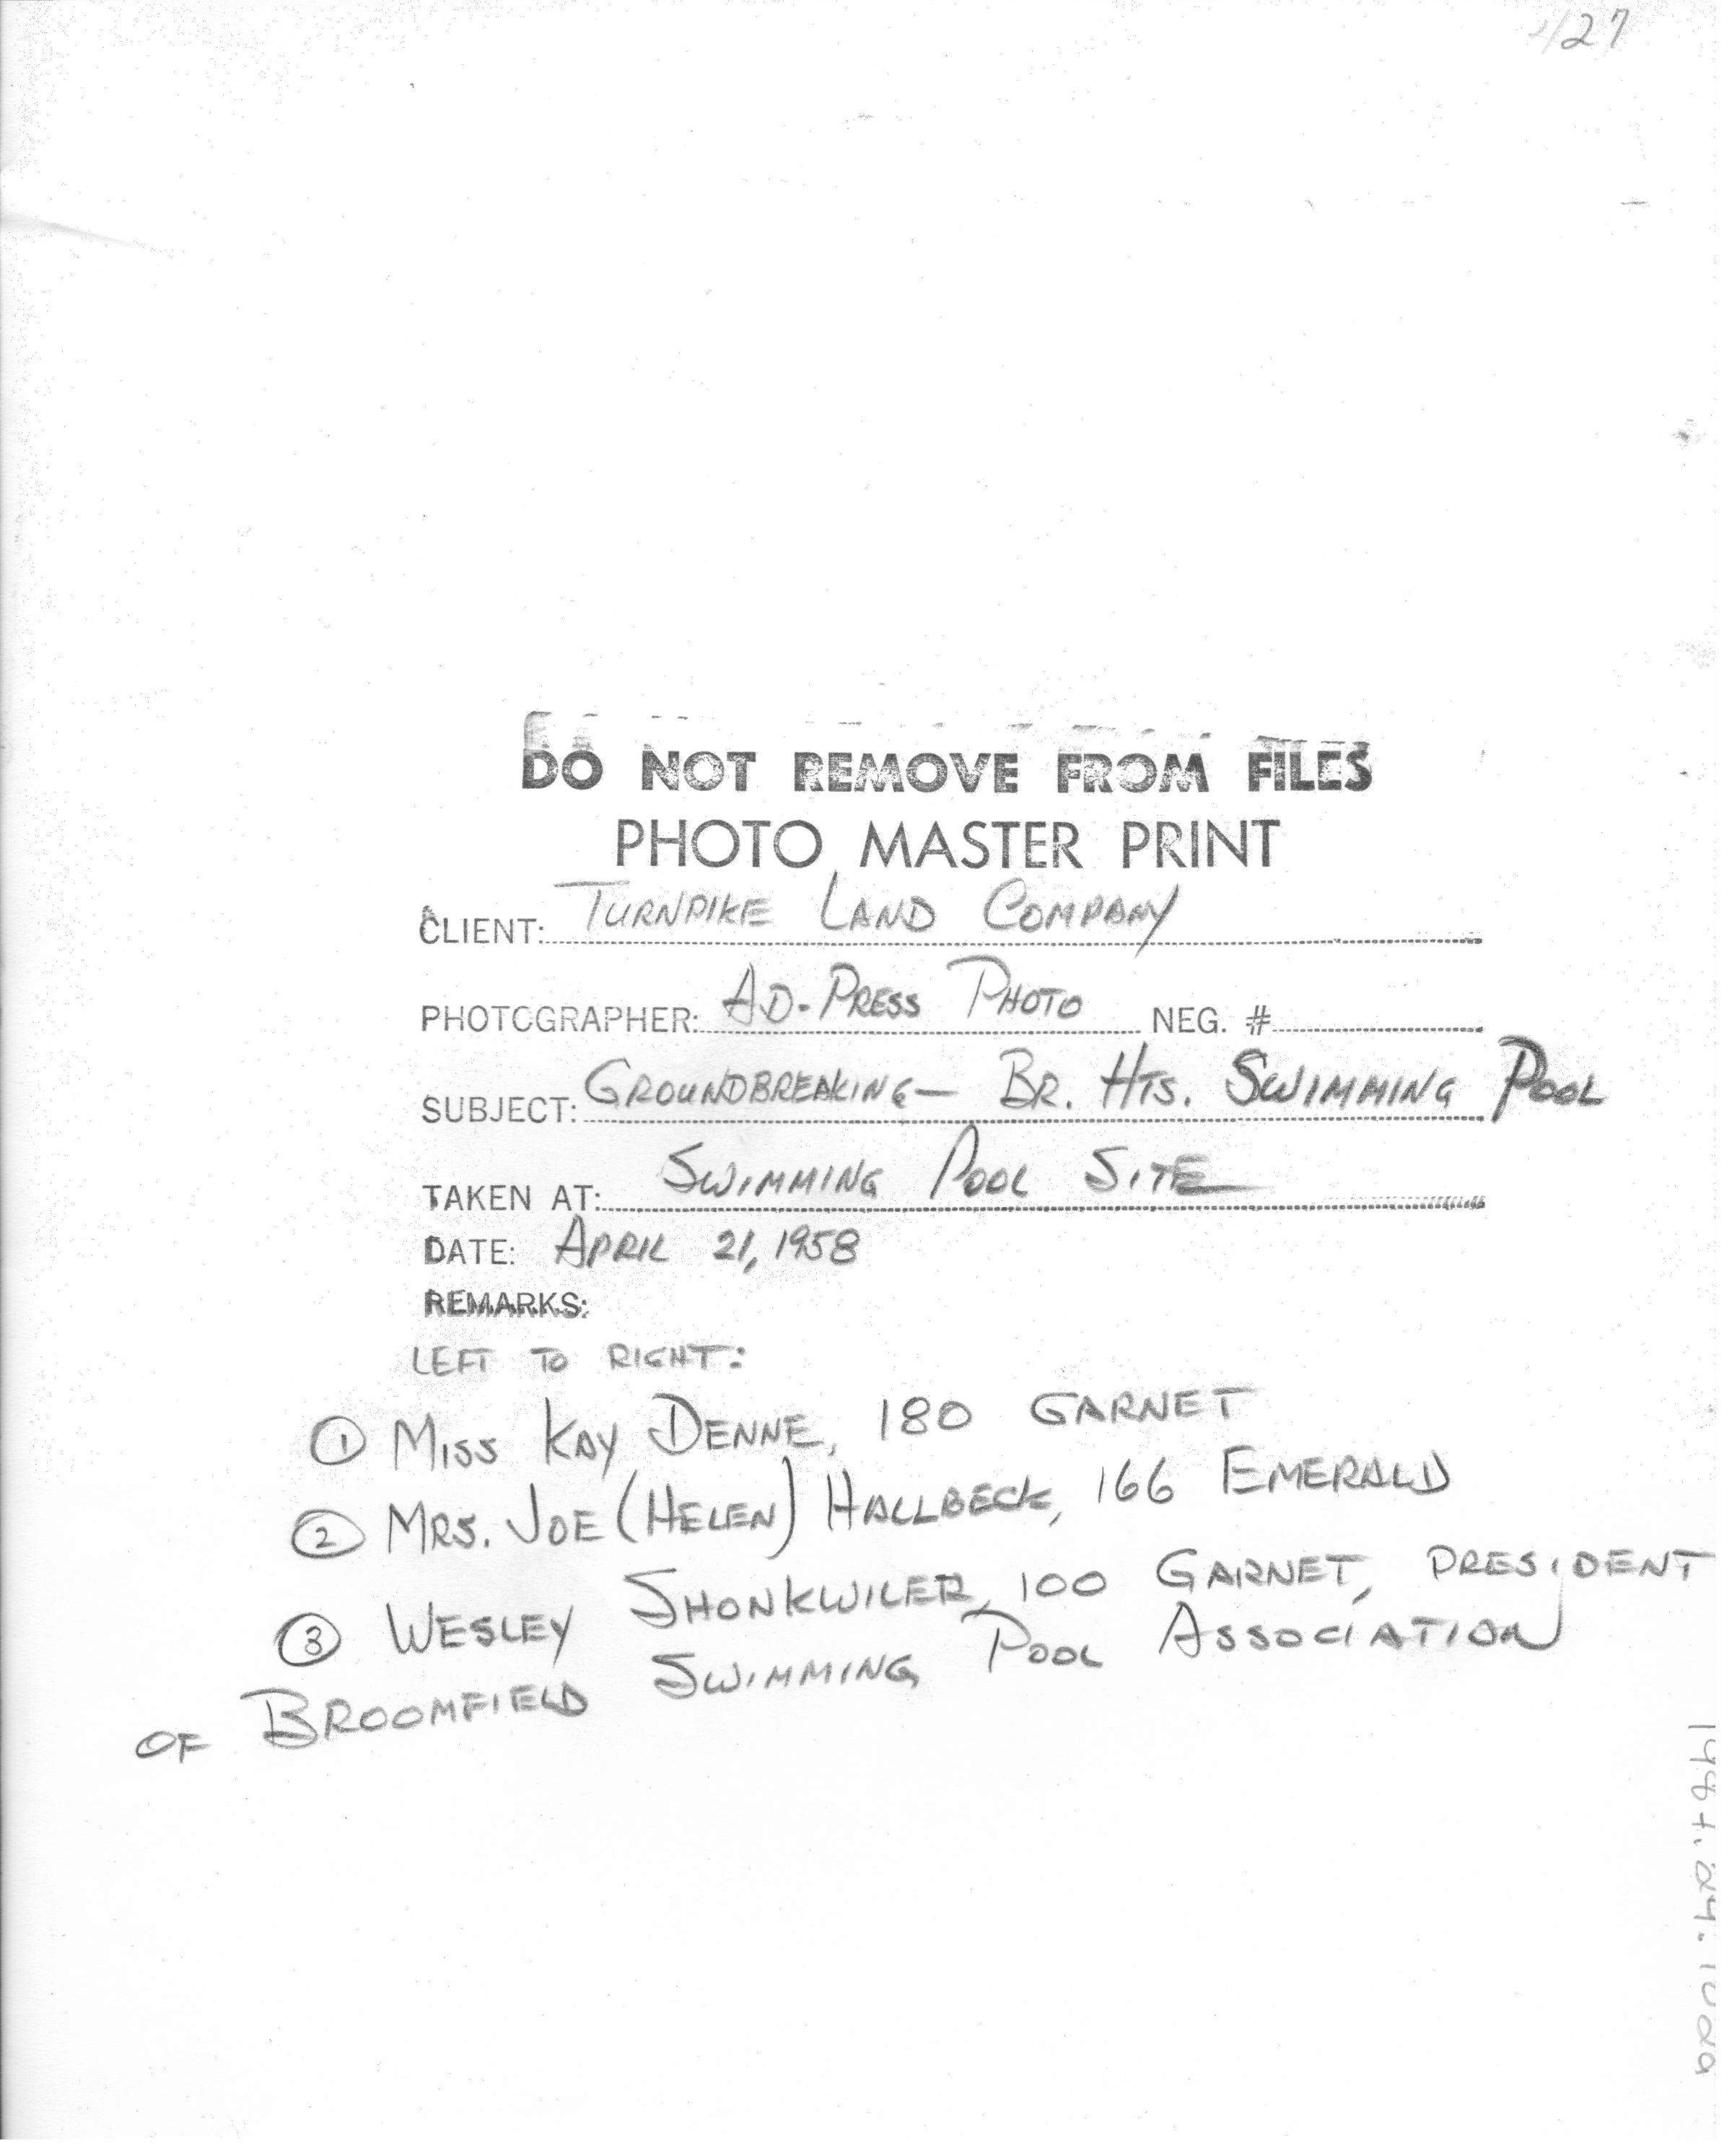 27
DO NOT REMOVE FROM FILES
PHOTO MASTER PRINT
CLIENT: TURNPIKE LAND COMPANY
PHOTOGRAPHER: AD-PRESS PHOTO NEG. #
SUBJECT: GROUNDBREAKING — BR. HTS. SWIMMING POOL
TAKEN AT: SWIMMING POOL SITE
DATE: APRIL 21, 1958
REMARKS:
LEFT TO RIGHT:
① MISS KAY DENNE, 180 GARNET
② MRS. JOE (HELEN) HALLBECK, 166 EMERALD
③ WESLEY SHONKWILER, 100 GARNET, PRESIDENT
OF BROOMFIELD SWIMMING POOL ASSOCIATION